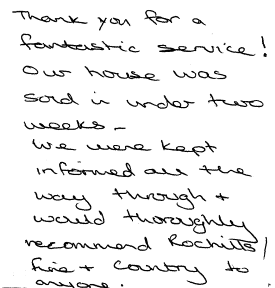 Thank you for a
fantastic service!
Our house was
sold in under two
weeks -
We were kept
informed all the
way through +
would thoroughly
recommend Rochills /
Fine + Country to
anyone.